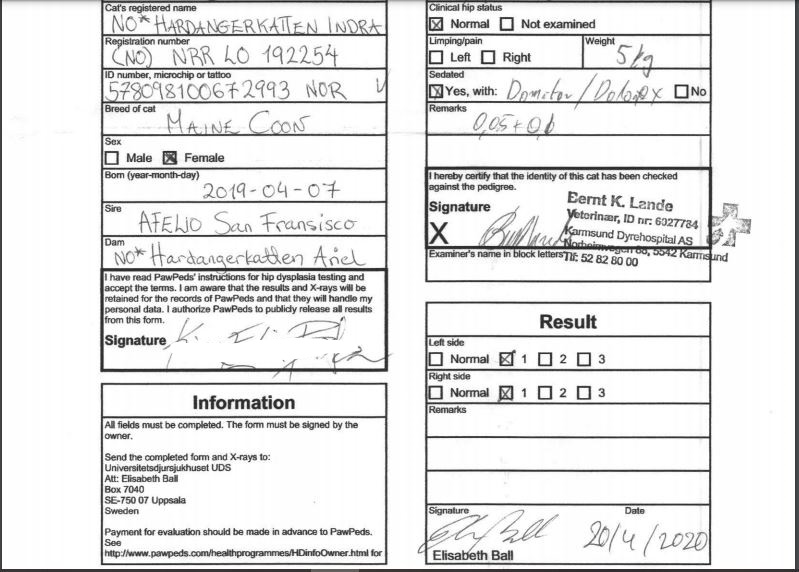 Cat's registered name
NO* HARDANGERKATTEN INDRA
Registration number
(NO) NRR LO 192254
ID number, microchip or tattoo
578098100672993 NOR
Breed of cat
MAINE COON
Sex
Male Female
Born (year-month-day)
2019-04-07
Sire
AFELIO San Fransisco
Dam
NO* Hardangerkatten Ariel
I have read PawPeds' instructions for hip dysplasia testing and
accept the terms. I am aware that the results and X-rays will be
retained for the records of PawPeds and that they will handle my
personal data. I authorize PawPeds to publicly release all results
from this form.
Signature
Information
All fields must be completed. The form must be signed by the
owner.
Send the completed form and X-rays to:
Universitetsdjursjukhuset UDS
Att: Elisabeth Ball
Box 7040
SE-750 07 Uppsala
Sweden
Payment for evaluation should be made in advance to PawPeds.
See
http://www.pawpeds.com/healthprogrammes/HDinfoOwner.html for
Clinical hip status
Normal Not examined
Limping/pain
Left Right
Weight
5kg
Sedated
Yes, with: Domitor / No
Remarks
0,05 +
I hereby certify that the identity of this cat has been checked
against the pedigree.
Signature
X
Bernt K. Lande
Veterinær, ID nr: 6027784
Karmsund Dyrehospital AS
Norheimvegen 88, 5542 Karmsund
Tlf: 52 82 80 00
Examiner's name in block letters
Result
Left side
Normal 1 2 3
Right side
Normal 1 2 3
Remarks
Signature Date
20/4/2020
Elisabeth Ball